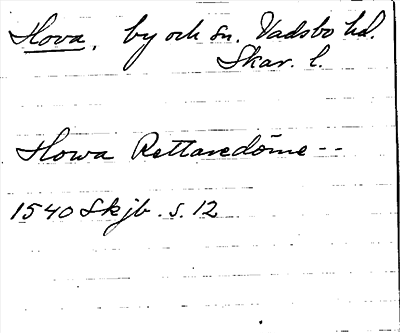 Hova, by och sn. Vadsbo hd.
Skar. l.
Howa Rettaredöme --
1540 Skjb. s. 12